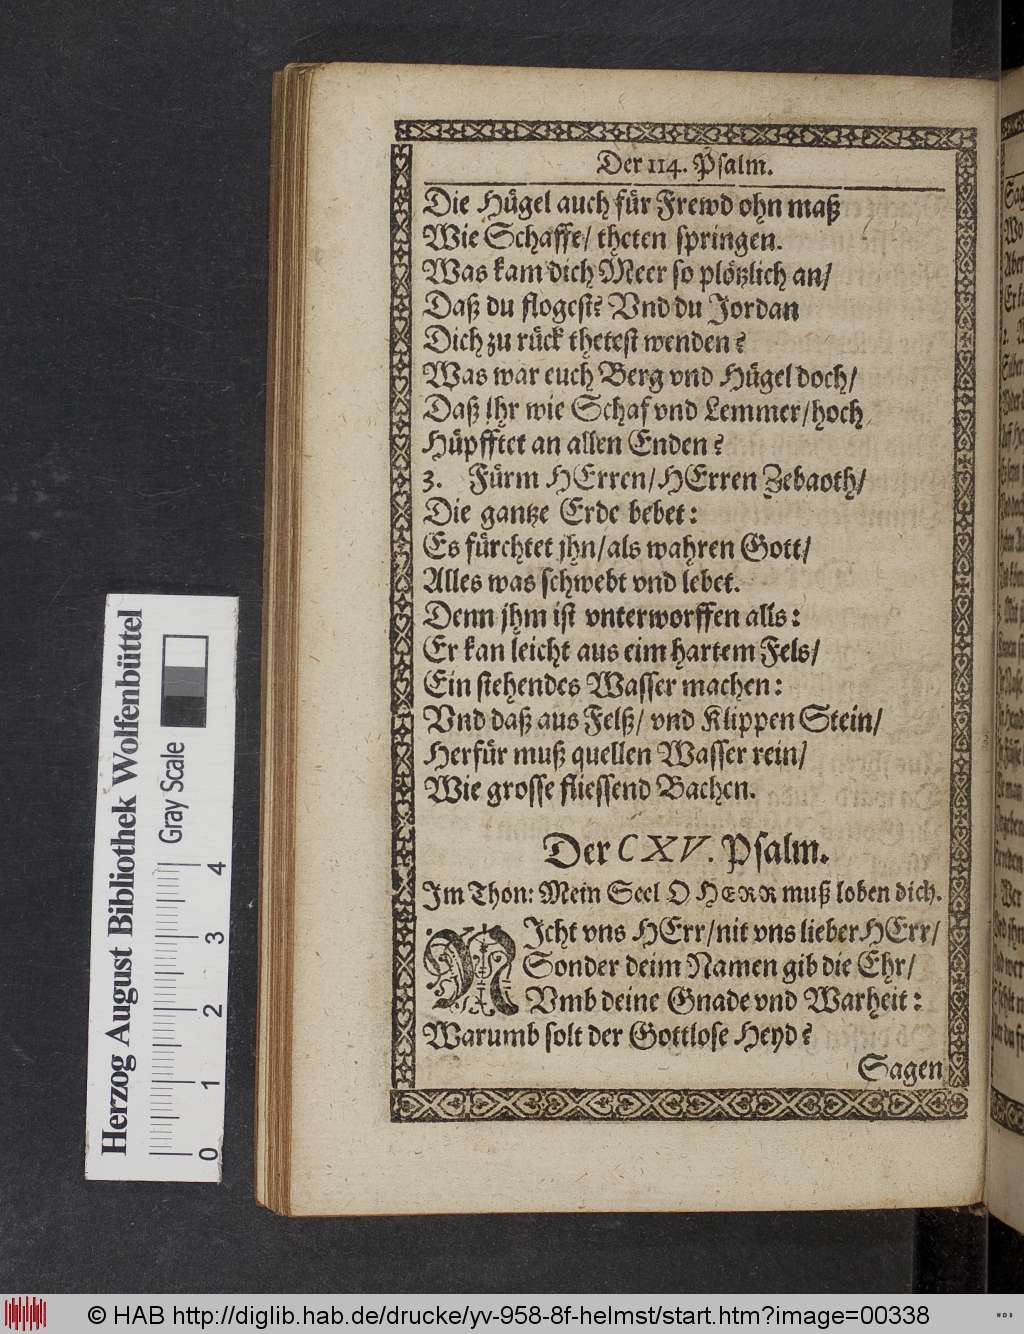 Der 114. Psalm.
Die Hügel auch für Frewd ohn maß
Wie Schaffe/ theten springen.
Was kam dich Meer so plötzlich an/
Daß du flogest? Vnd du Jordan
Dich zu rück thetest wenden?
Was war euch Berg vnd Hügel doch/
Daß jhr wie Schaf vnd Lemmer/hoch
Hüpfftet an allen Enden?
3. Fürm HErren/HErren Zebaoth/
Die gantze Erde bebet:
Es fürchtet jhn/als wahren Gott/
Alles was schwebt vnd lebet.
Denn jhm ist vnterworffen alls:
Er kan leicht aus eim hartem Fels/
Ein stehendes Wasser machen:
Vnd daß aus Felß/ vnd Klippen Stein/
Herfür muß quellen Wasser rein/
Wie grosse fliessend Bachen.
Der CXV. Psalm.
Im Thon: Mein Seel O HERR muß loben dich.
NIcht vns HErr/nit vns lieber HErr/
Sonder deim Namen gib die Ehr/
Vmb deine Gnade vnd Warheit:
Warumb solt der Gottlose Heyd?
Sagen
Herzog August Bibliothek Wolfenbüttel
Gray Scale
0 1 2 3 4
© HAB http://diglib.hab.de/drucke/yv-958-8f-helmst/start.htm?image=00338